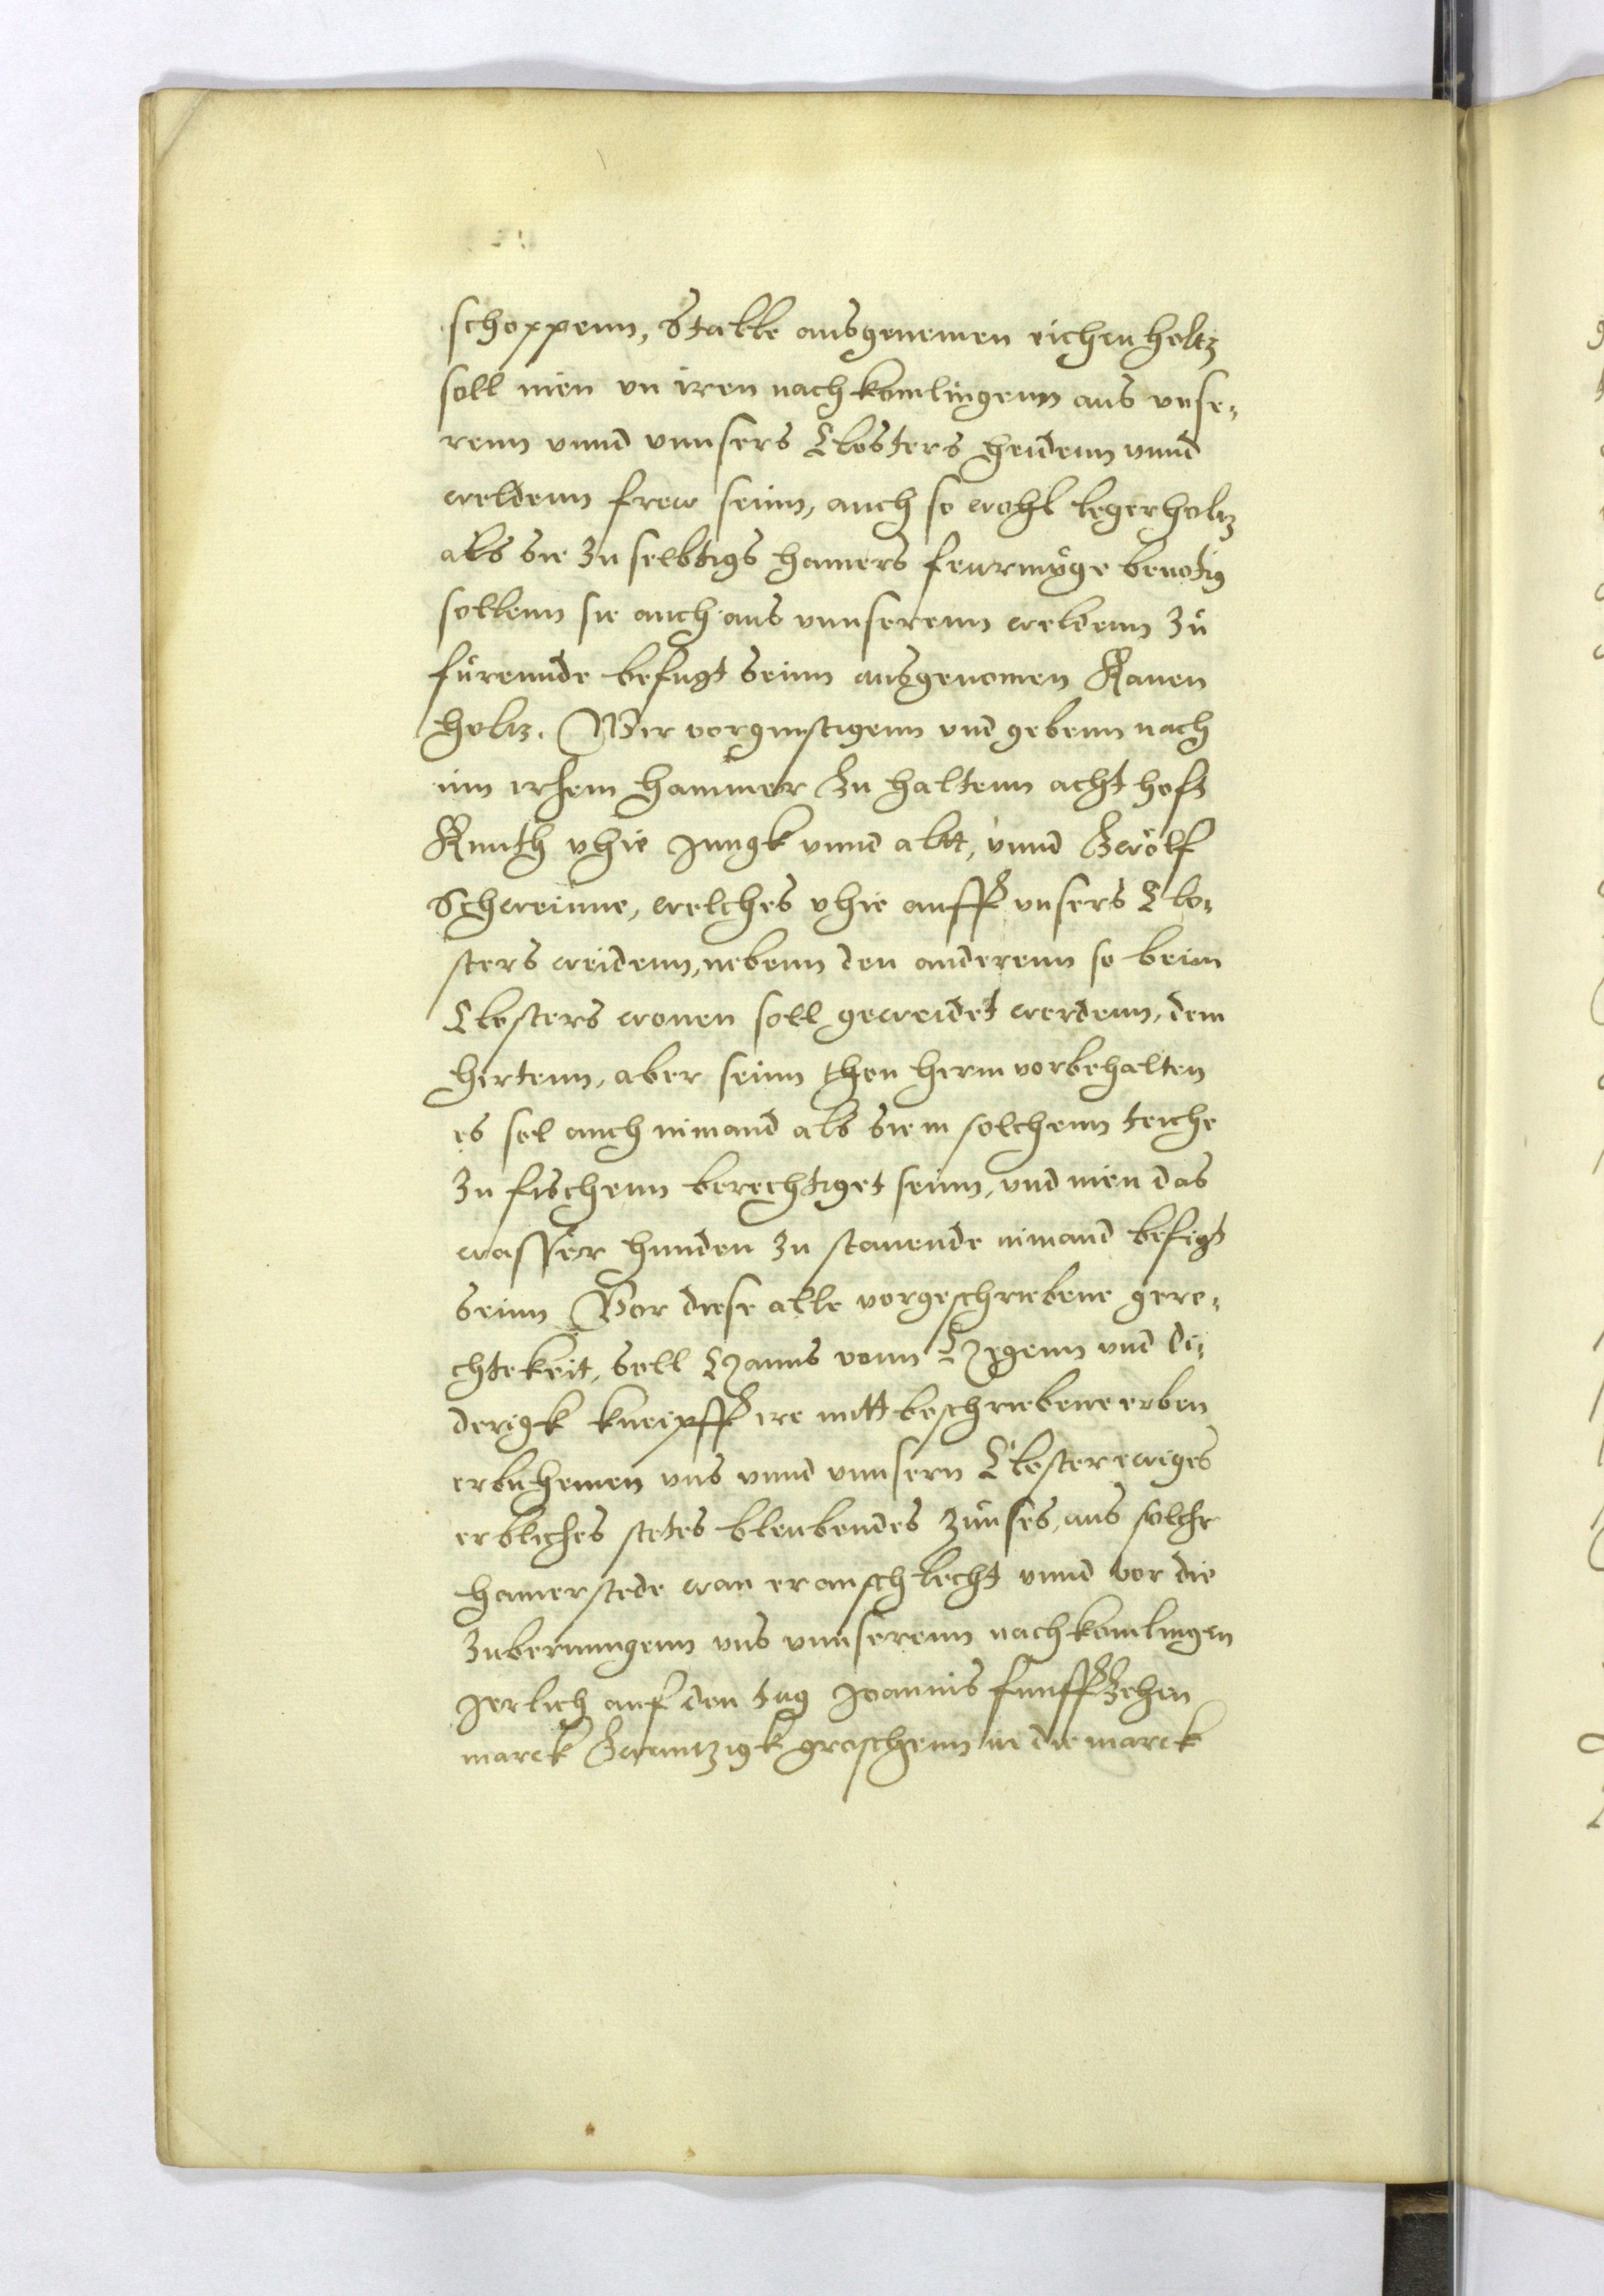 schoppenn, Stalle ausgenemen eichen holtz
soll inen vn iren nachkomlingenn aus vnse¬
renn vnnd vnnsers Closters heidenn vnnd
weldenn frew seinn, auch so wohl legerholtz
als sie zu selbtigs hamers feur möge benotig
sollenn sie auch aus vnnserenn weldenn zu
fürennde befugt seinn ausgenomen Kanen
holtz. Wir vorgunstigenn vnd gebenn nach
inn irhem hammer Zu haltenn acht hoft
Rinth vhie Jungk vnnd altt, vnnd Zwölf
Schweinne, welches vhie aufff vnsers Clo¬
sters weidenn, nebenn den anderenn so beim
Closters wonen soll geweidet werdenn, dem
hirtenn, aber seinn then herin vorbehalten
es sol auch nimand als sie in solchenn teiche
zu fischenn berechtiget seinn, vnd inen das
wasser hinden zu stauende nimand befugt
seinn Vor diese alle vorgeschriebene gere¬
chtekeit, soll Hanns vonn Hegenn vnd di¬
derigk kneipff ire mitt beschriebene erben
erbnhemen vns vnnd vnnsern Closter ewiges
erbliches stetes bleubendes zinses, aus solcher
hamerstede wan er anschlecht vnnd vor die
zuberungenn vns vnnserenn nachkomlingen
Jerlich auf den tag Joannis funffZehen
marck Zwantzigk groschenn in die marck